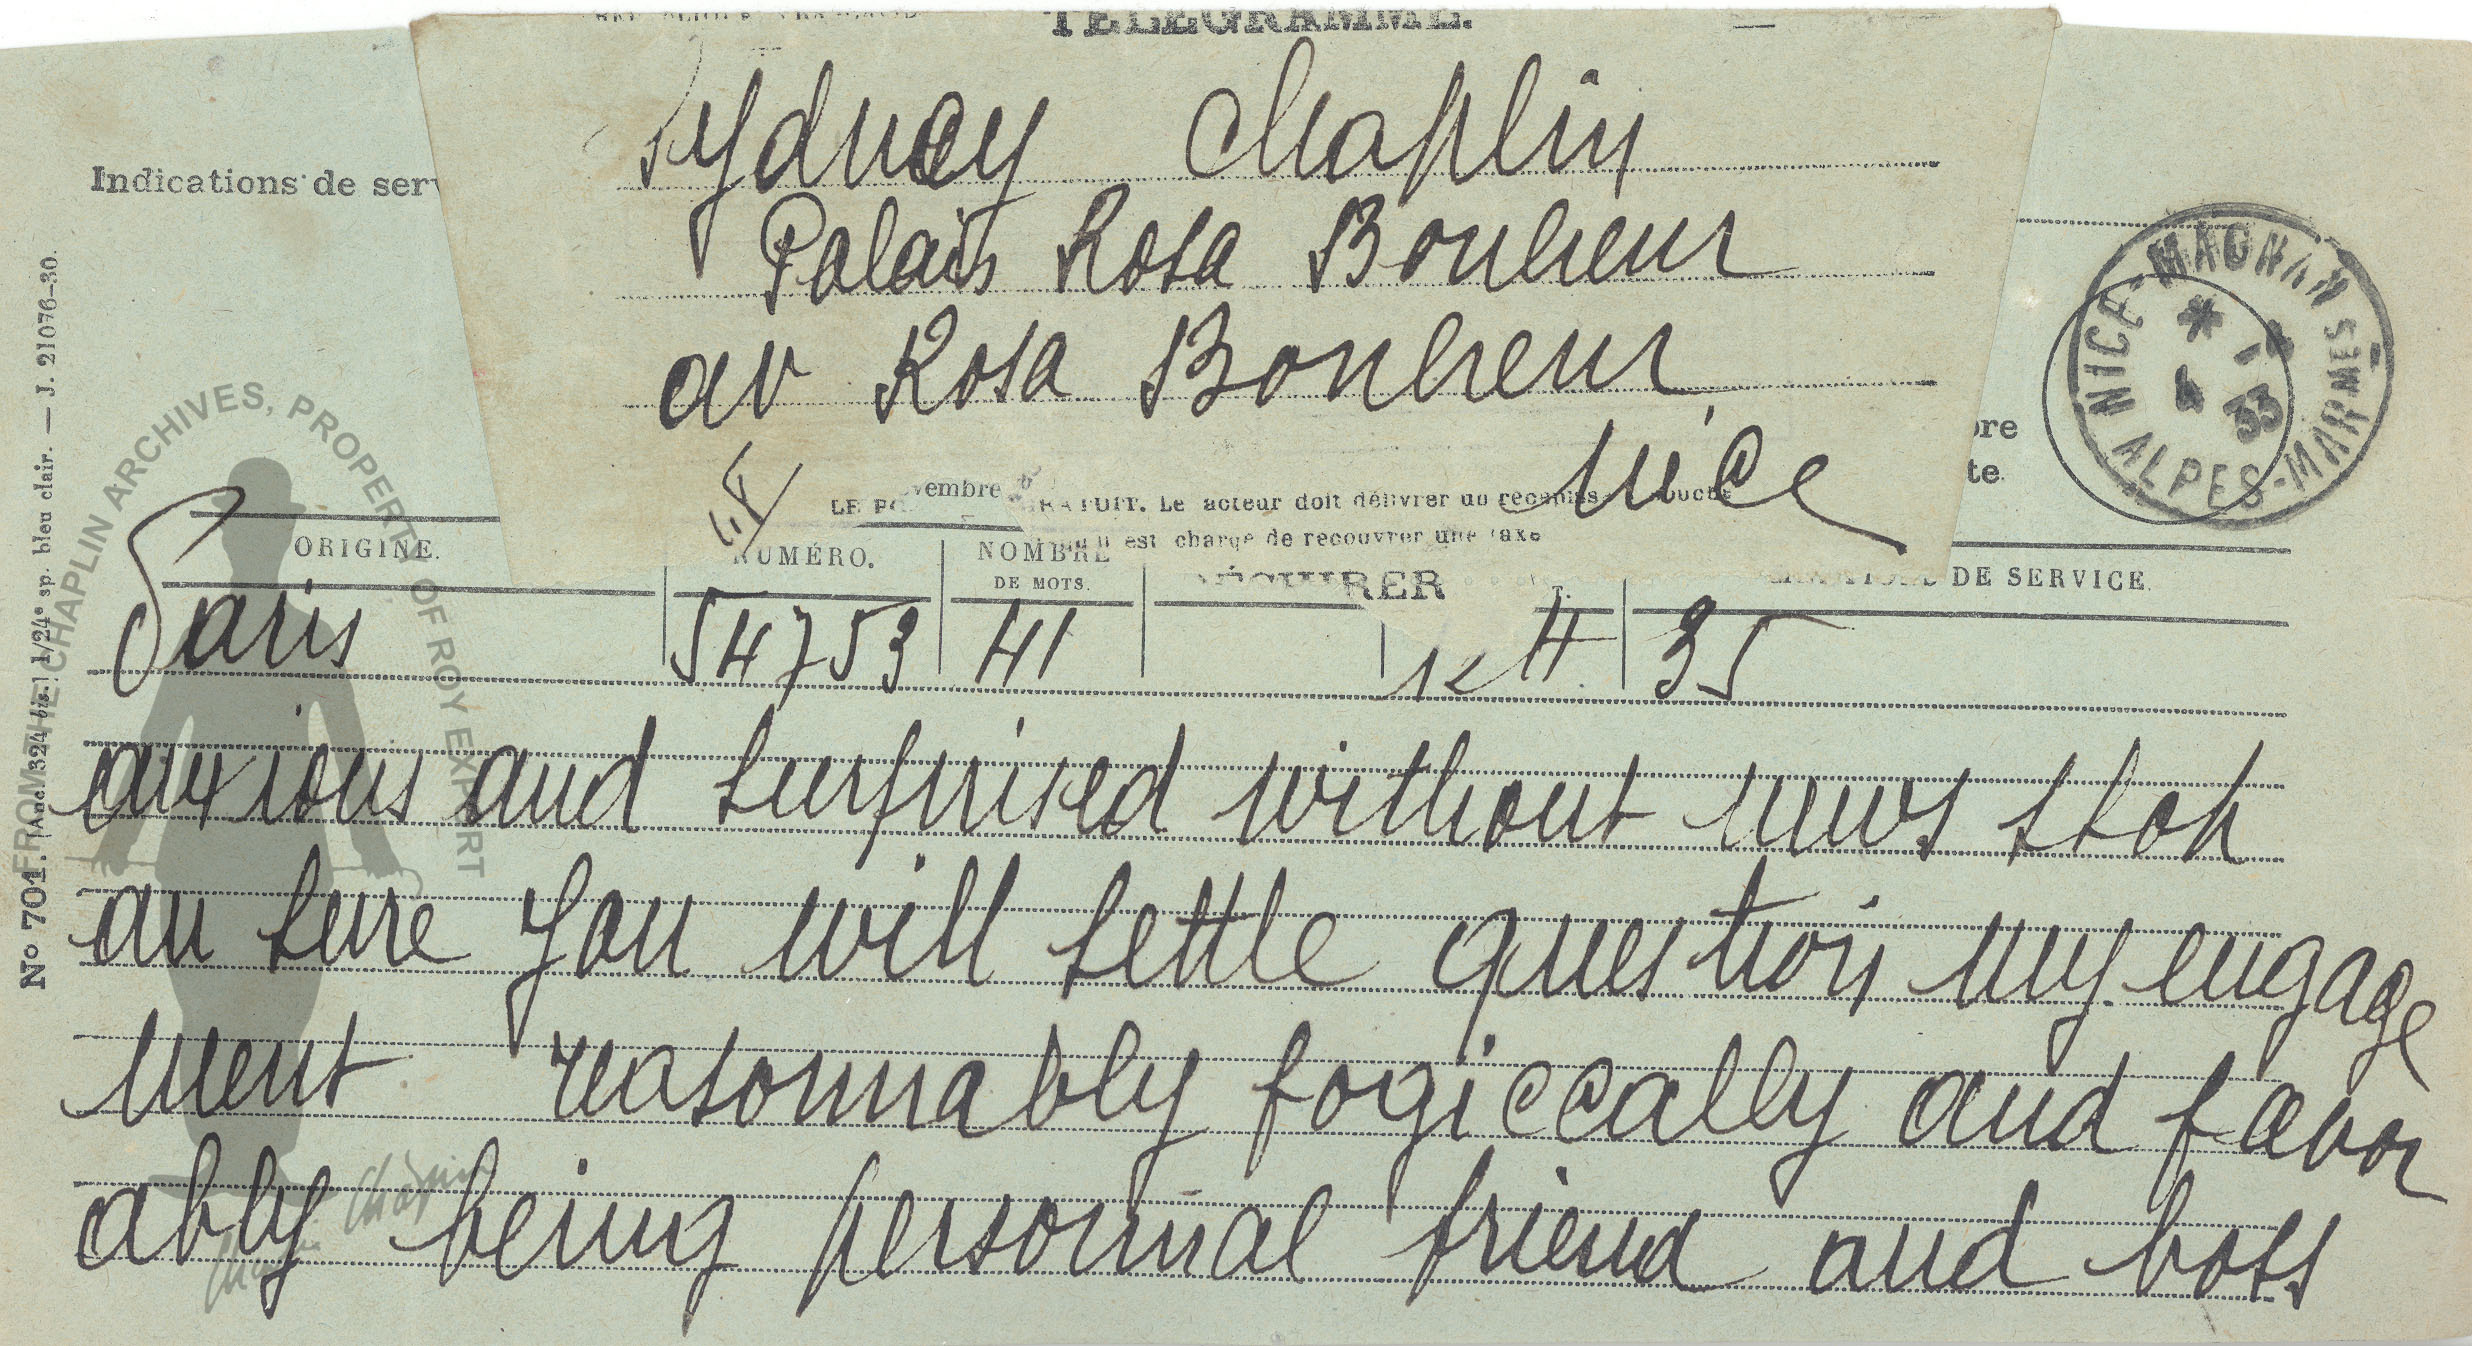 TELEGRAMME.
Sydney Chaplin
Palais Rosa Bonheur
av Rosa Bonheur
Nice
Indications de ser
NICE-MAGNAN
ALPES-MARMES
* 4 -
33
bre
te.
vembre
GRATUIT. Le acteur doit délivrer un
est chargé de recouvrer une taxe
ORIGINE.
NUMÉRO.
NOMBRE
DE MOTS.
DE SERVICE.
Paris 54753 41 4 35
anxious and surprised without news stop
am sure you will settle question my engage
ment reasonnably fogiccally and favor
ably being personnal friend and boss
No 701. (Anc. 324 bis.) 1/24e sp. bleu clair. — J. 21076-30.
FROM THE CHAPLIN ARCHIVES, PROPERTY OF ROY EXPORT